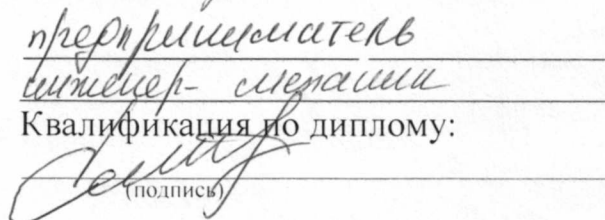 предприниматель
инженер- механик
Квалификация по диплому:
(подпись)